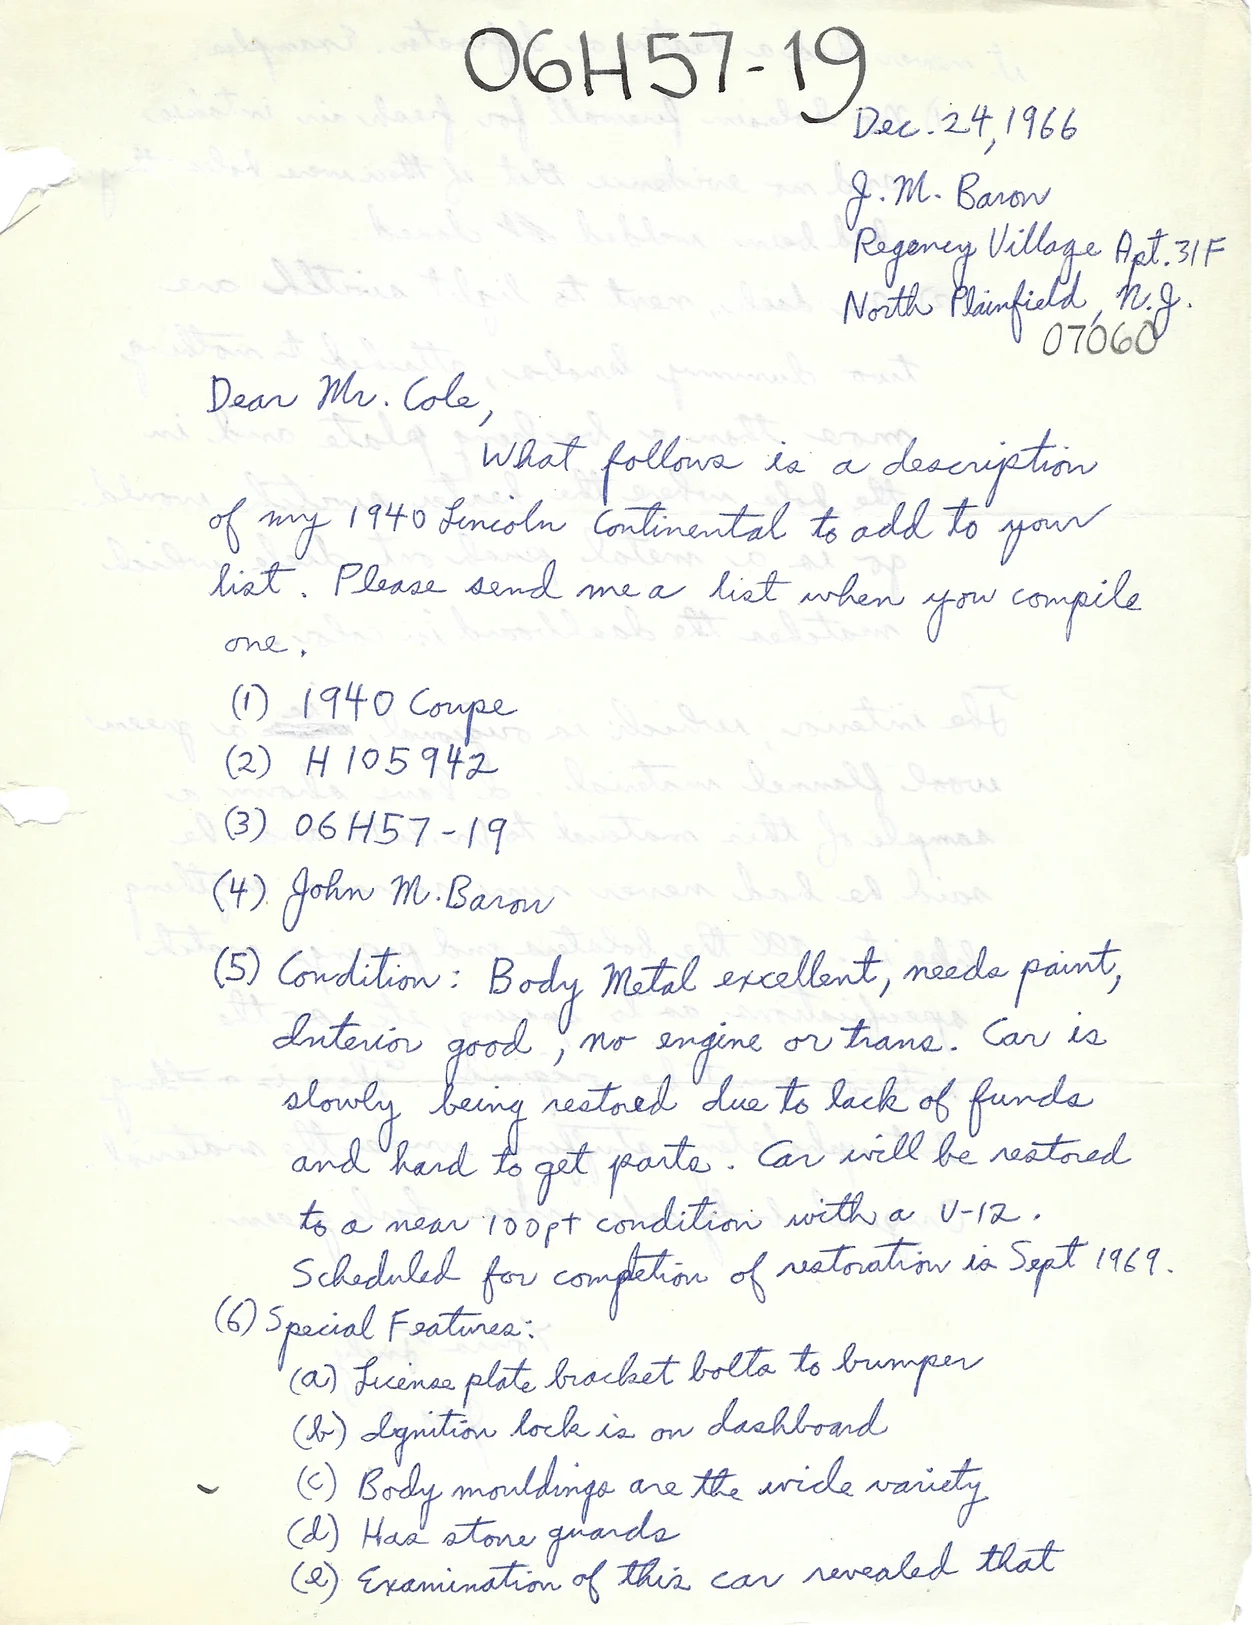 06H57-19
Dec. 24, 1966
J. M. Baron
Regency Village Apt. 31F
North Plainfield, N.J.
07060
Dear Mr. Cole,
What follows is a description
of my 1940 Lincoln Continental to add to your
list. Please send me a list when you compile
one.
(1) 1940 Coupe
(2) H 105942
(3) 06H57-19
(4) John M. Baron
(5) Condition: Body Metal excellent, needs paint,
Interior good, no engine or trans. Car is
slowly being restored due to lack of funds
and hard to get parts. Car will be restored
to a near 100pt condition with a V-12.
Scheduled for completion of restoration is Sept 1969.
(6) Special Features:
(a) License plate bracket bolts to bumper
(b) Ignition lock is on dashboard
(c) Body mouldings are the wide variety
(d) Has stone guards
(e) Examination of this car revealed that